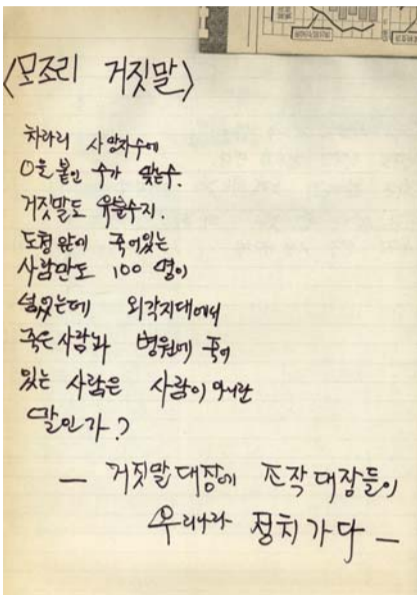 <모조리 거짓말>
차라리 사망자수에
0을 붙인 수가 맞는수.
거짓말도 유분수지.
도청앞에 죽어있는
사람만도 100 명이
넘었는데 외곽지대에서
죽은 사람과 병원에 죽어
있는 사람은 사람이 아니란
말인가?
— 거짓말 대장에 조작 대장들이
우리나라 정치가다 —